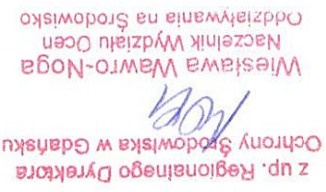 z up. Regionalnego Dyrektora
Ochrony Środowiska w Gdańsku
Wiesława Wawro-Noga
Naczelnik Wydziału Ocen
Oddziaływania na Środowisko